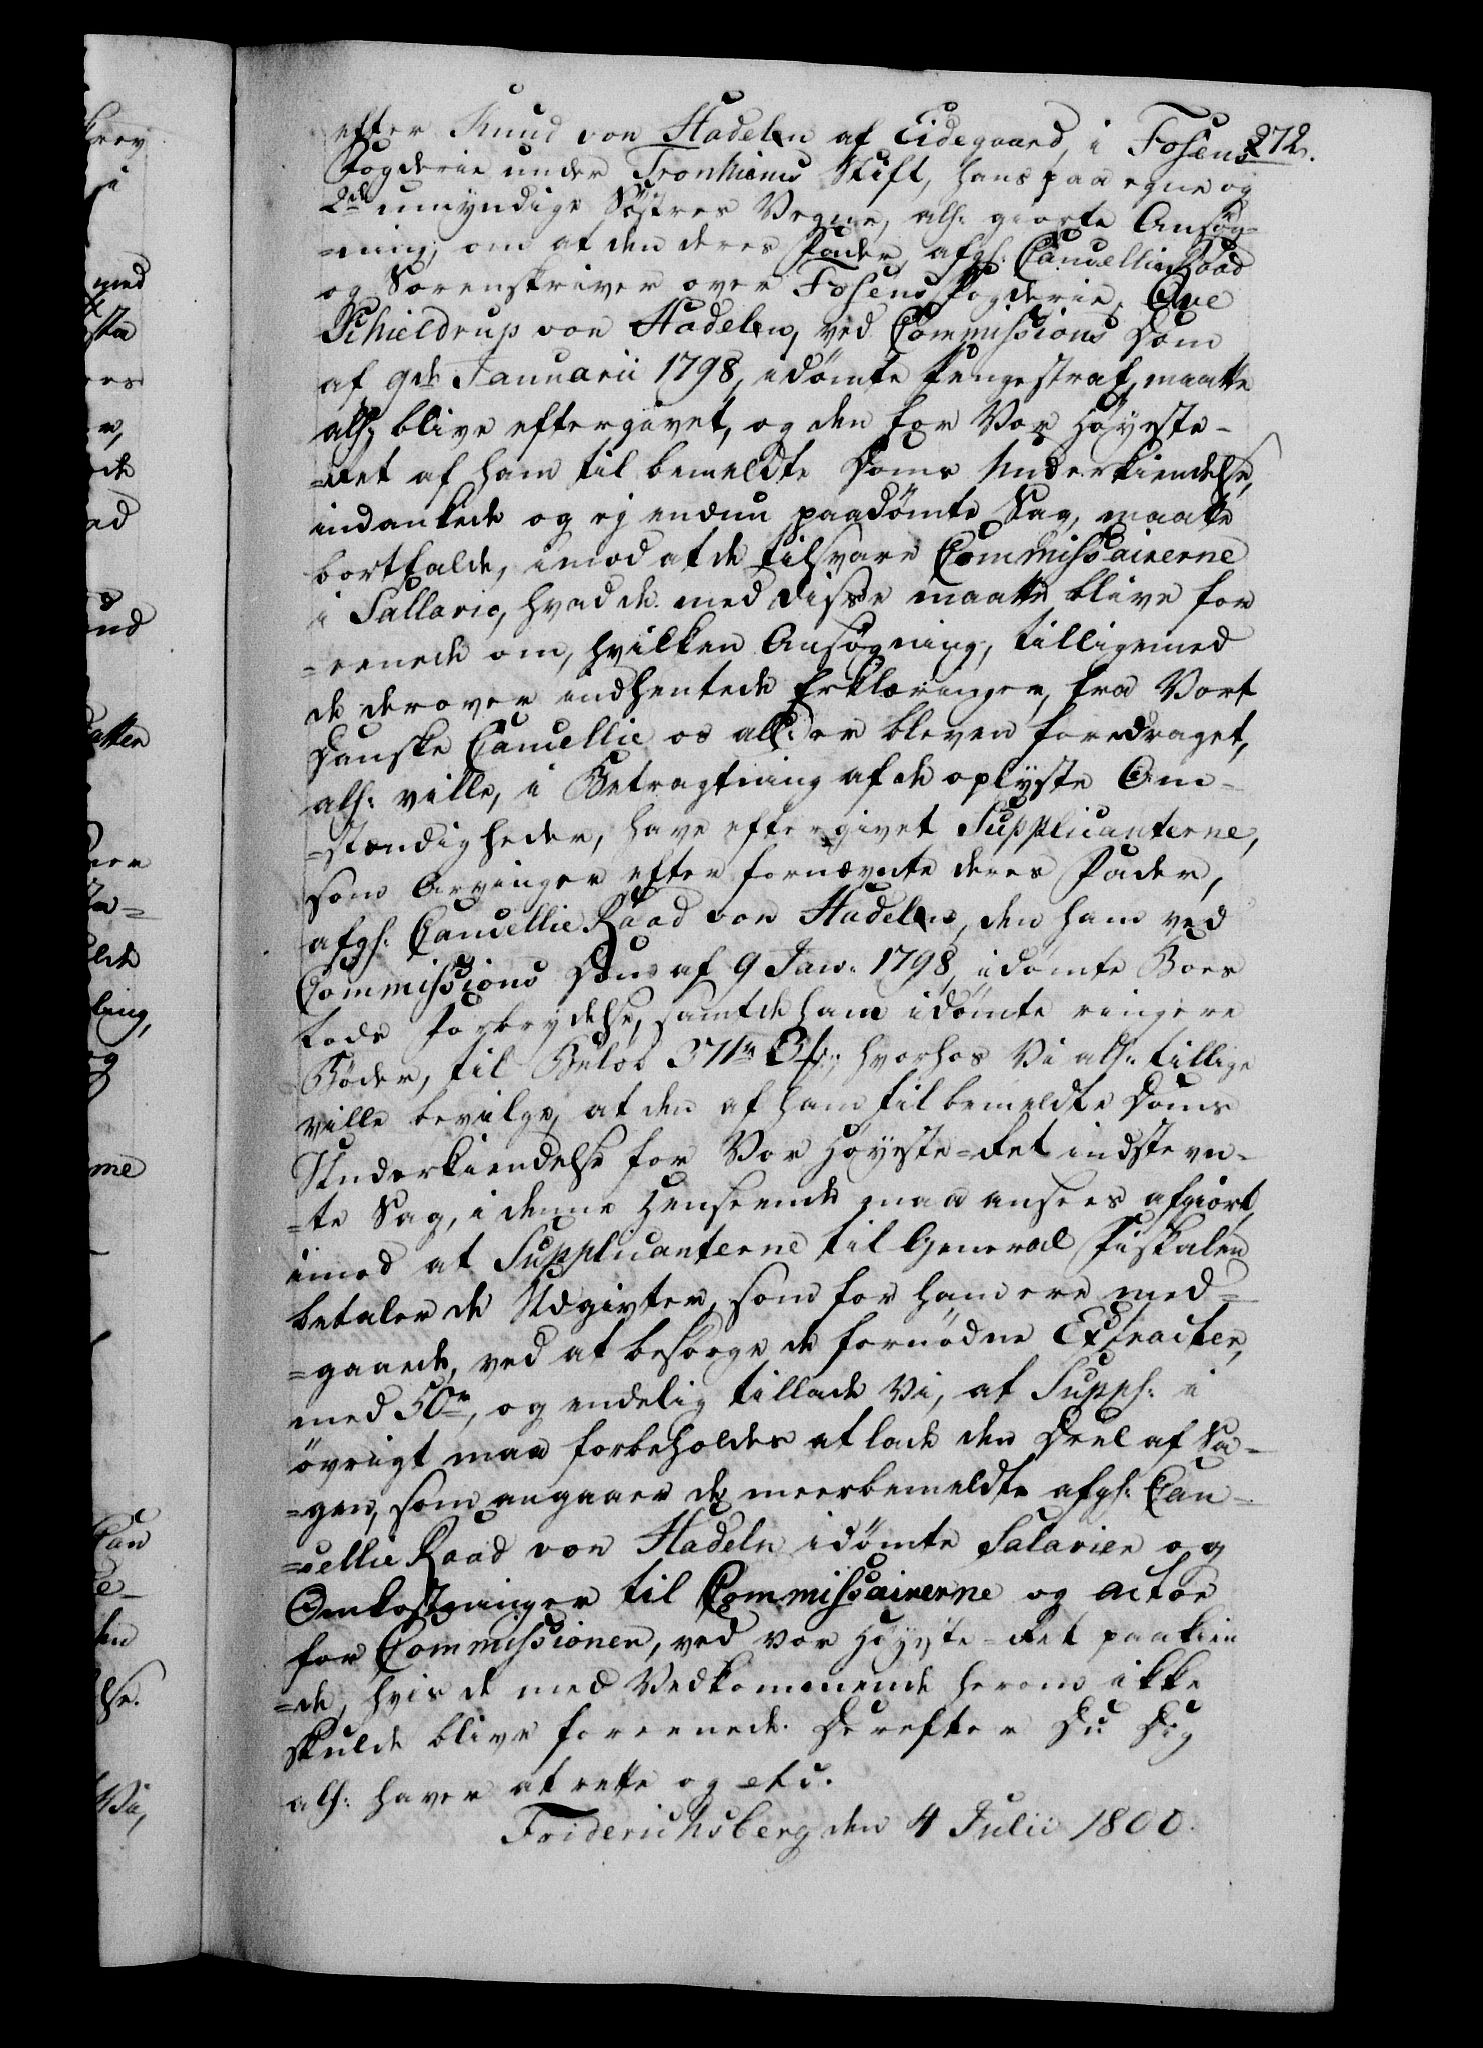 272.
efter Knud von Hadeln af Eidegaard, i Fosens
Fogderie under Tronhiems Stift, hans paa egne og
2de umyndige Söstres Vegne, alh: giorte Ansög-
=ning, om at den deres Fader, afg: Cancellie Raad
og Sorenskriver over Fosens Fogderie, Ove
Schieldrup von Hadeln, ved Commissions Dom
af 9de Januarii 1798, idömte Pengestraf, maatte
alh: blive eftergivet, og den for Vor Höyeste-
=Ret af ham til bemeldte Doms Underkiendelse,
indankede og ej endnu paadömte Sag, maatte
bortfalde, imod at de tilsvare Commissairerne
i Sallario, hvad de med disse maatte blive for
=eenede om, hvilken Ansögning, tilligemed
de derover indhentede Erklæringer, fra Vort
Danske Cancellie os alh: er bleven foredraget,
alh: ville, i Betragtning af de oplyste Om-
=stændigheder, have eftergivet Supplicanterne,
som Arvinger efter fornævnte deres Fader,
afg: Cancellie Raad von Hadeln, den ham ved
Commissions Dom af 9 Jan: 1798, idömte Boes
lods Forbrydelse, samt de ham idömte ringere
Böder, til Belöb 371 rd 3 s:, hvorhos Vi alh: tillige
ville bevilge, at den af ham til bemeldte Doms
Underkiendelse for Vor Höyeste=Ret indstevn-
=te Sag, i denne Henseende maa ansees afgiort,
imod at Supplicanterne til General Fiskalen
betaler de Udgivter, som for ham ere med-
=gaaede, ved at besörge de fornödne Extracter,
med 50 rd, og endelig tillade Vi, at Supp: i
övrigt maa forbeholdes at lade den Deel af Sa-
=gen, som angaaer de meerbemeldte afg: Can-
=cellie Raad von Hadeln idömte Salarier og
Omkostninger til Commissairerne og Actor
for Commissionen, ved Vor Höyeste-Ret paakien
=de, hvis de med Vedkommende herom ikke
skulde blive foreenede. Derefter Du Dig
alh: haver at rette og etc.
Friderichsberg den 4 Julii 1800.